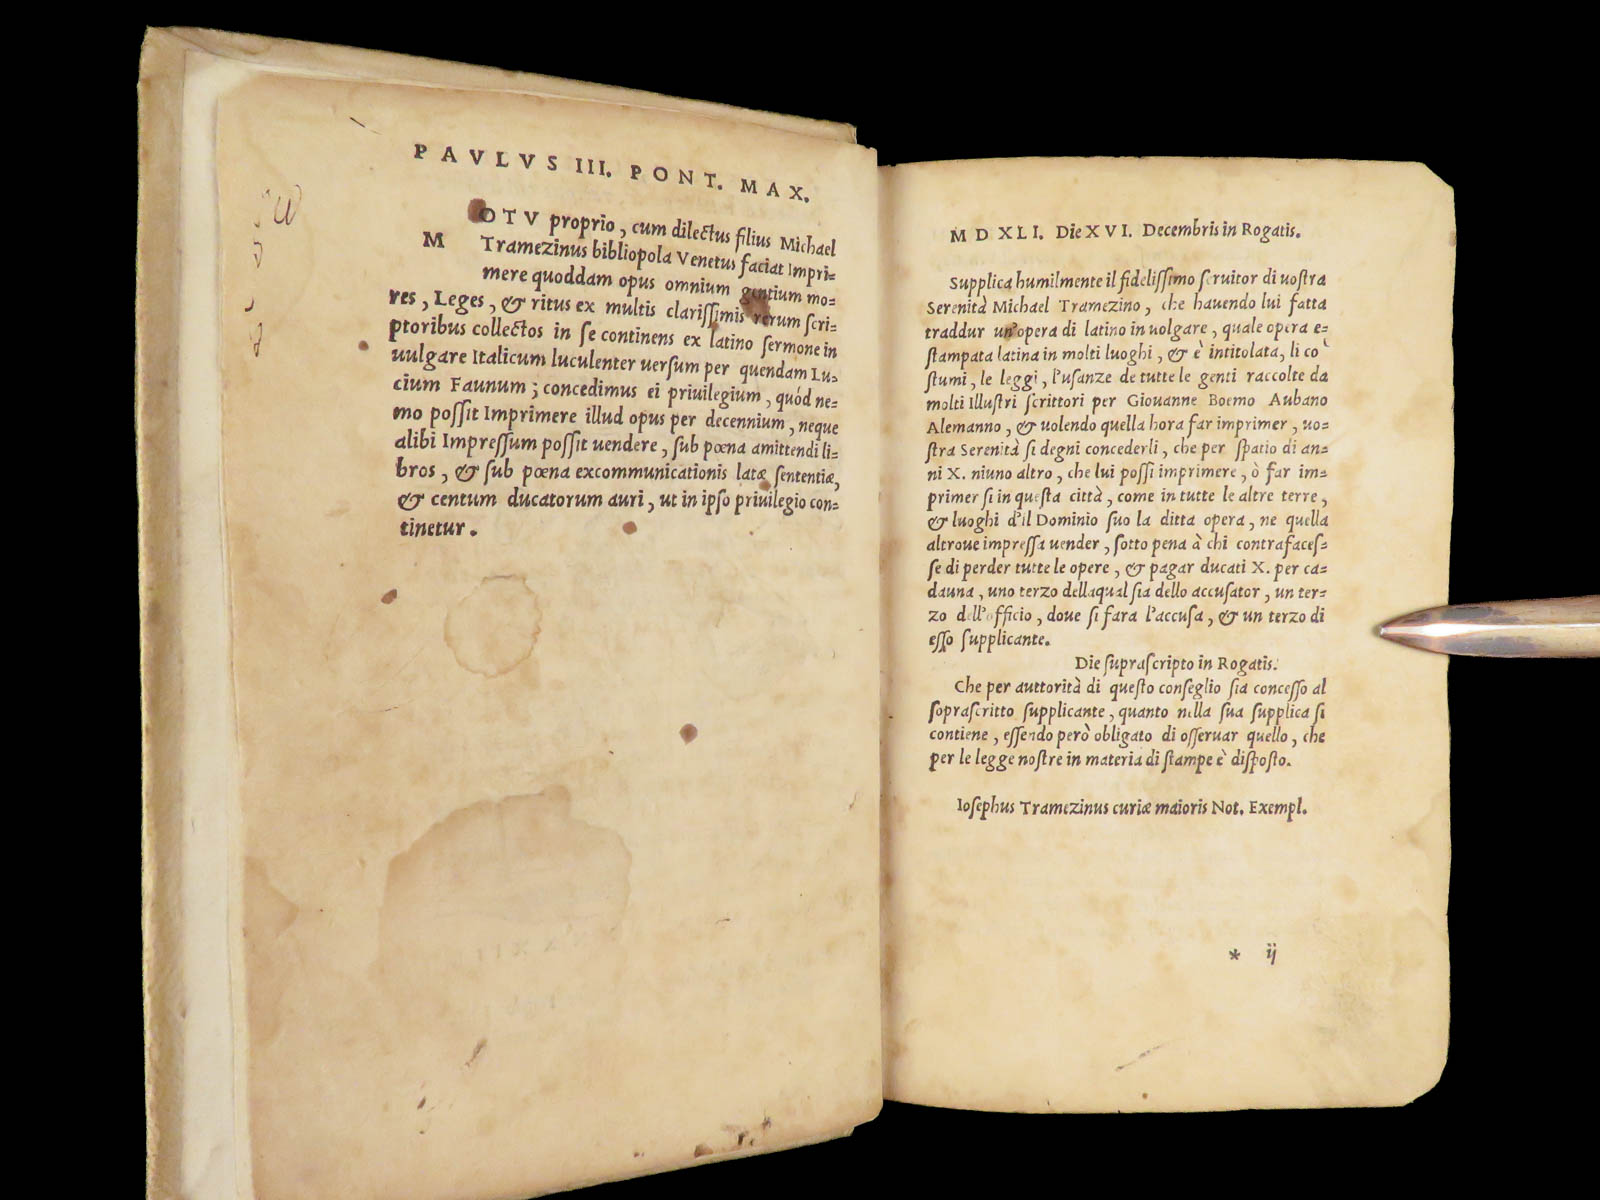 PAVLVS III. PONT. MAX.
MOTV proprio, cum dilectus filius Michael
Tramezinus bibliopola Venetus faciat Impri-
mere quoddam opus omnium gentium mo-
res, Leges, & ritus ex multis clarissimis rerum scri-
ptoribus collectos in se continens ex latino sermone in
uulgare Italicum luculenter uersum per quendam Lu-
cium Faunum; concedimus ei priuilegium, quód ne-
mo possit Imprimere illud opus per decennium, neque
alibi Impressum possit uendere, sub pœna amittendi li-
bros, & sub pœna excommunicationis latæ sententiæ,
& centum ducatorum auri, ut in ipso priuilegio con-
tinetur.
MDXLI. Die XVI. Decembris in Rogatis.
Supplica humilmente il fidelissimo seruitor di uostra
Serenità Michael Tramezino, che hauendo lui fatta
traddur un'opera di latino in uolgare, quale opera e-
stampata latina in molti luoghi, & è intitolata, li co
stumi, le leggi, l'usanze de tutte le genti raccolte da
molti Illustri scrittori per Giouanne Boemo Aubano
Alemanno, & uolendo quella hora far imprimer, uo-
stra Serenità si degni concederli, che per spatio di an-
ni X. niuno altro, che lui possi imprimere, ò far im-
primer si in questa città, come in tutte le altre terre,
& luoghi d'il Dominio suo la ditta opera, ne quella
altroue impressa uender, sotto pena à chi contrafaces-
se di perder tutte le opere, & pagar ducati X. per ca-
dauna, uno terzo dellaqual sia dello accusator, un ter-
zo dell'officio, doue si fara l'accusa, & un terzo di
esso supplicante.
Die suprascripto in Rogatis.
Che per auttorità di questo conseglio sia concesso al
soprascritto supplicante, quanto nella sua supplica si
contiene, essendo però obligato di osseruar quello, che
per le legge nostre in materia di stampe è disposto.
Iosephus Tramezinus curiæ maioris Not. Exempl.
* ij